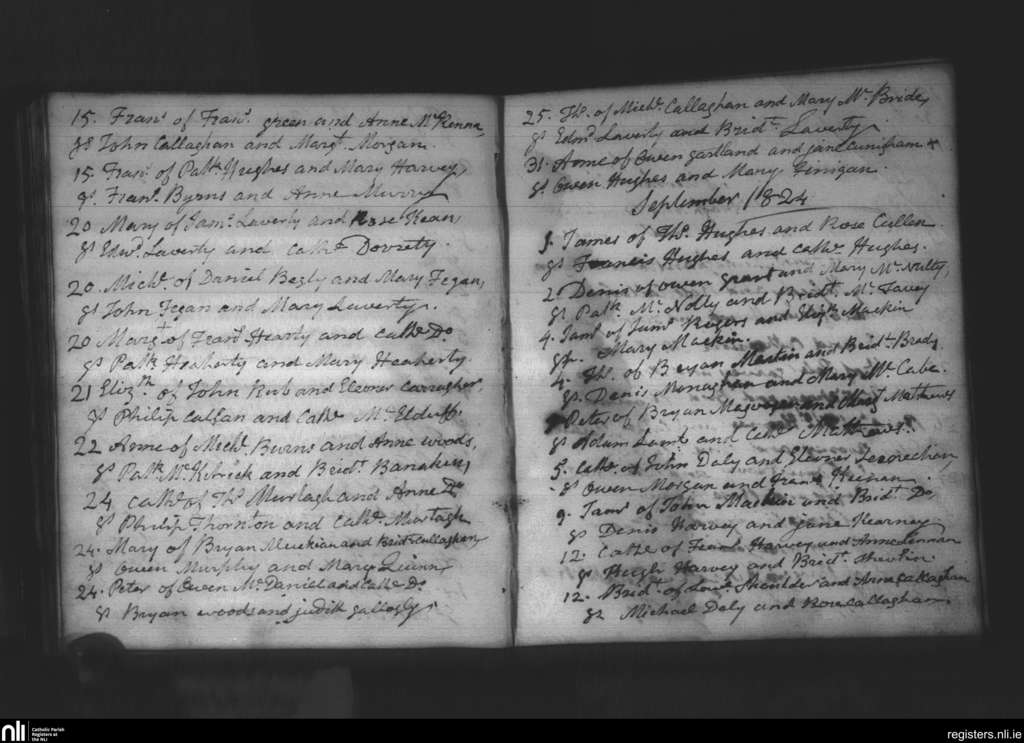 15. Franˢ. of Franˢ. green and Anne McKenna,
gs John Callaghan and Margᵗ. Morgan.
15. Franˢ. of Patk. Hughes and Mary Harvey
gs. Franˢ. Byrns and Anne Murry
20 Mary of Jamˢ. Laverty and Rose Kean,
gs Edwᵈ. Laverty and Cathᵉ
20. Michˡ. of Daniel Begly and Mary Fegan,
gs John Fegan and Mary Laverty.
20 Marg of Franˢ. Hearty and Cathe Do
gs Patk. Heaherty and Mary Heaherty.
21 Elizth. of John Rub and Eleoner Carragher,
gs Philip Callan and Cathe McElduff.
22 Anne of Michˡ. Burns and Anne woods,
gs Patk. McKitrick and Bridᵗ.
24 Cathe of Thˢ Murtagh and Anne Do
gs Philip Thornton and Cathe. Murtagh
24. Mary of Bryan and Bridᵗ Callaghan,
gs Owen Murphy and Mary Quinn
24. Peter of Owen McDaniel and Cathe Do
gs Bryan woods and judith gallogly
25. Thˢ. of Michˡ. Callaghan and Mary McBride,
gs Edmᵈ Laverty and Bridᵗ. Laverty
31. Anne of Owen gartland and jane Cunigham
gs Owen Hughes and Mary Finigan.
September 1824
1. James of Thˢ. Hughes and Rose Cullen
gs Francis Hughes and Cathe. Hughes.
2 Denis of owen grant and Mary McNulty,
gs Patk. McNolly and Bridᵗ. Mc
4. Jamˢ of Jamˢ Rogers and Elizth Mackin
gs. Mary Mackin.
4. Thˢ. of Bryan Martin and Bridᵗ. Brady
gs. Denis Monaghan and Mary McCabe.
Peter of Bryan and Margᵗ Mathews
gs Adam Lamb and Cathe Matthews.
5. Cathe. of John Daly and Eleoner
gs Owen Morgan and Keenan
9. Jamˢ of John Mackin and Bridᵗ. Do,
gs Denis Harvey and jane Kearney
12. Cathe of Franˢ Harvey and Anne Lennan
gs Hugh Harvey and Bridᵗ.
12. Bridᵗ. of and Anne Callaghan
gs Michael Daly and Rose Callaghan.
nli
Catholic Parish
Registers at
the NLI
registers.nli.ie